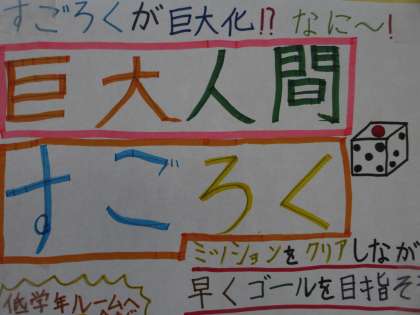 すごろくが巨大化!? なに〜!
巨大人間
すごろく
ミッションをクリアしなが
早くゴールを目指そ
低学年ルームへ